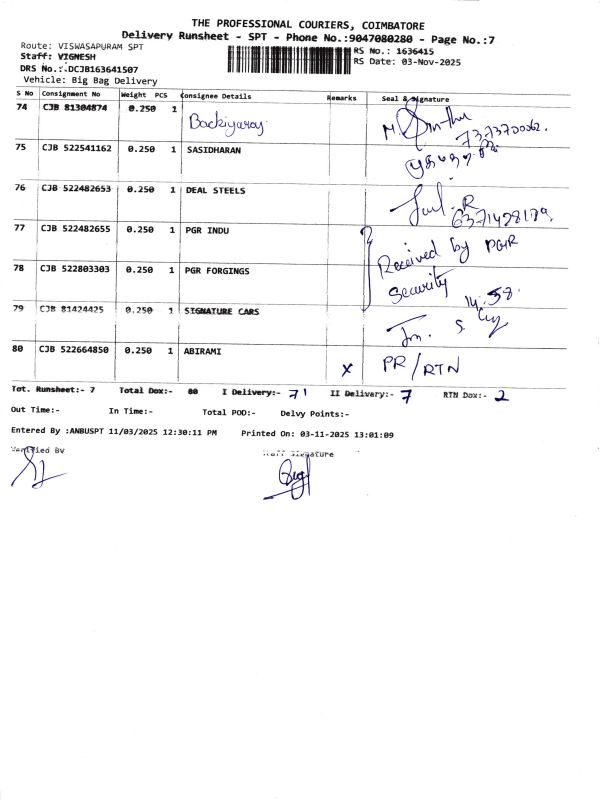 THE PROFESSIONAL COURIERS, COIMBATORE
Delivery Runsheet - SPT - Phone No.:9047080280 - Page No.:7
Route: VISWASAPURAM SPT
Staff: VIGNESH
DRS No.:.DCJB163641507
Vehicle: Big Bag Delivery
RS No.: 1636415
RS Date: 03-Nov-2025
S No Consignment No Weight PCS Consignee Details Remarks Seal & Signature
74 CJB 81304874 0.250 1 Backiyaraj
75 CJB 522541162 0.250 1 SASIDHARAN
76 CJB 522482653 0.250 1 DEAL STEELS
77 CJB 522482655 0.250 1 PGR INDU Received by PGR
78 CJB 522803303 0.250 1 PGR FORGINGS Security 14:58
79 CJB 81424425 0.250 1 SIGNATURE CARS
80 CJB 522664850 0.250 1 ABIRAMI x PR/RTN
Tot. Runsheet:- 7 Total Dox:- 80 I Delivery:- 71 II Delivery:- 7 RTN Dox:- 2
Out Time:- In Time:- Total POD:- Delvy Points:-
Entered By :ANBUSPT 11/03/2025 12:30:11 PM Printed On: 03-11-2025 13:01:09
Verified By Staff Signature